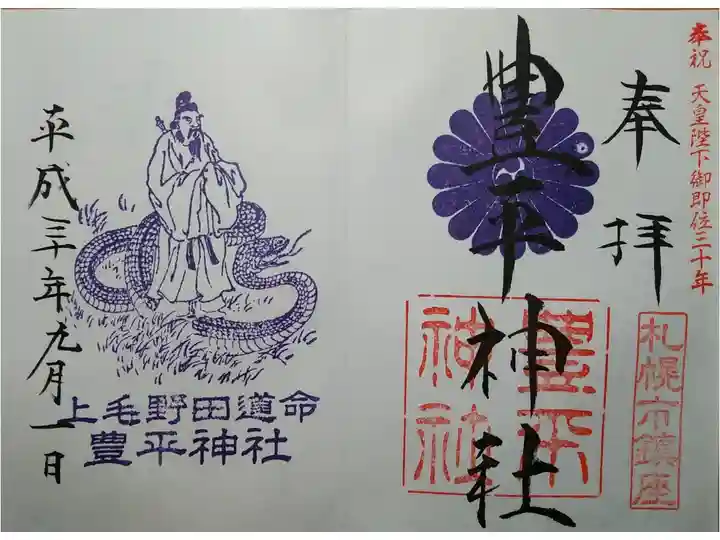 奉祝 天皇陛下御即位三十年
奉拝
札幌市鎮座
豊平神社
豊平神社
上毛野田道命
豊平神社
平成三十年九月一日